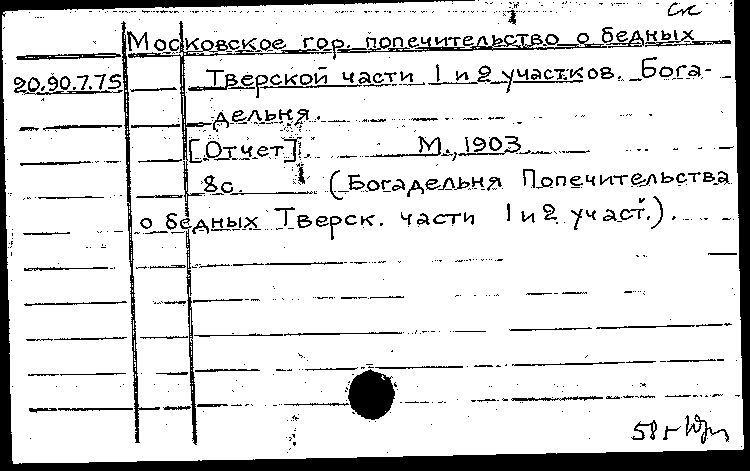 Ск
Московское гор. попечительство о бедных
20.90.7.75 Тверской части 1 и 2 участков. Бога-
дельня.
[Отчет]. М., 1903
8с. (Богадельня Попечительства
о бедных Тверск. части 1 и 2 участ.).
58 г